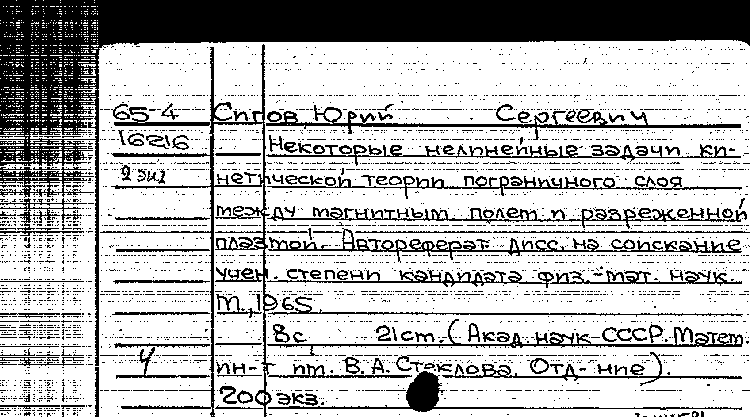 65-4 Сигов, Юрий Сергеевич
16216 Некоторые нелинейные задачи ки-
2 экз нетической теории пограничного слоя
между магнитным полем и разреженной
плазмой. Автореферат дисс. на соискание
учен. степени кандидата физ.-мат. наук.
М., 1965.
8с 21см. (Акад. наук СССР. Матем.
ин-т им. В.А. Стеклова. Отд-ние).
200 экз.